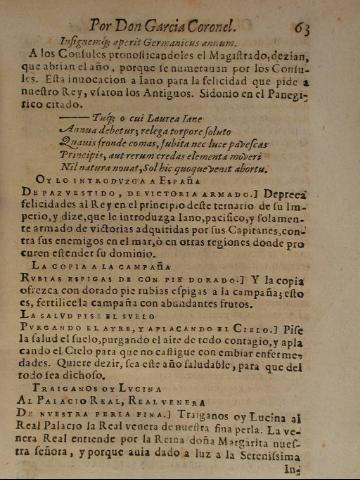 Por Don Garcia Coronel. 63
Insignemq; aperit Germanicus annum.
A los Consules pronosticandoles el Magistrado, dezian,
que abrian el año, porque se numerauan por los Consu-
les. Esta inuocacion a Iano para la felicidad que pide a
nuestro Rey, vsaron los Antiguos. Sidonio en el Panegi-
rico citado.
Tuq; o cui Laurea Iane
Annua debetur; relega torpore soluto
Quauis fronde comas, subita nec luce pauescas
Principis, aut rerum credas elementa moveri
Nil natura nouat, Sol hic quoque venit abortu.
OY LO INTRODUZGA A ESPAÑA
DE PAZ VESTIDO, DE VICTORIA ARMADO.] Depreca
felicidades al Rey en el principio deste ternario de su Im
perio, y dize, que le introduzga Iano, pacifico, y solamen-
te armado de victorias adquitidas por sus Capitanes, con-
tra sus enemigos en el mar, ò en otras regiones donde pro
curen estender su dominio.
LA COPIA A LA CAMPAÑA
RUBIAS ESPIGAS DE CON PIE DORADO.] Y la copia
ofrezca con dorado pie rubias espigas a la campaña; esto
es, fertilice la campaña con abundantes frutos.
LA SALUD PISE EL SVELO
PVRGANDO EL AYRE, Y APLACANDO EL CIELO.] Pise
la salud el suelo, purgando el aire de todo contagio, y apla
cando el Cielo para que no castigue con embiar enferme-
dades. Quiere dezir, sea este año saludable, para que del
todo sea dichoso.
TRAIGANOS OY LUCINA
AL PALACIO REAL, REAL VENERA
DE NVESTRA PERLA FINA.] Traiganos oy Lucina al
Real Palacio la Real venera de nuestra fina perla. La ve-
nera Real entiende por la Reina doña Margarita nues-
tra señora, y porque auia dado a luz a la Serenissima
In-